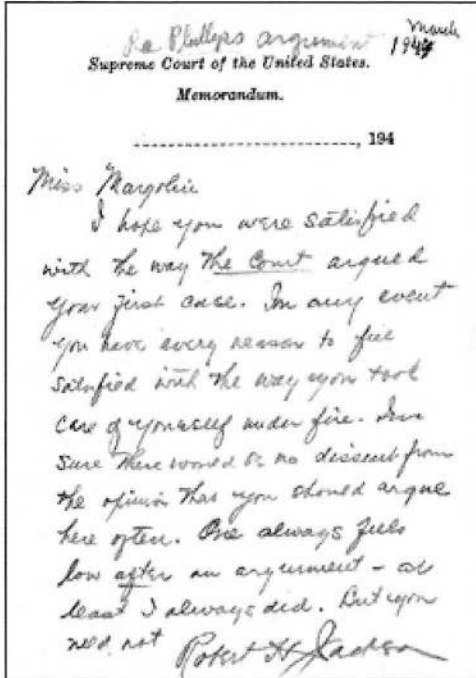 Re Phillips argument March
194
Supreme Court of the United States.
Memorandum.
-----------------------------, 194
Miss Margolin
I hope you were satisfied
with the way the Court argued
your first case. In any event
you have every reason to feel
satisfied with the way you took
care of yourself under fire. I'm
sure there would be no dissent from
the opinion that you should argue
here often. One always feels
low after an argument - at
least I always did. But you
need not
Robert H Jackson